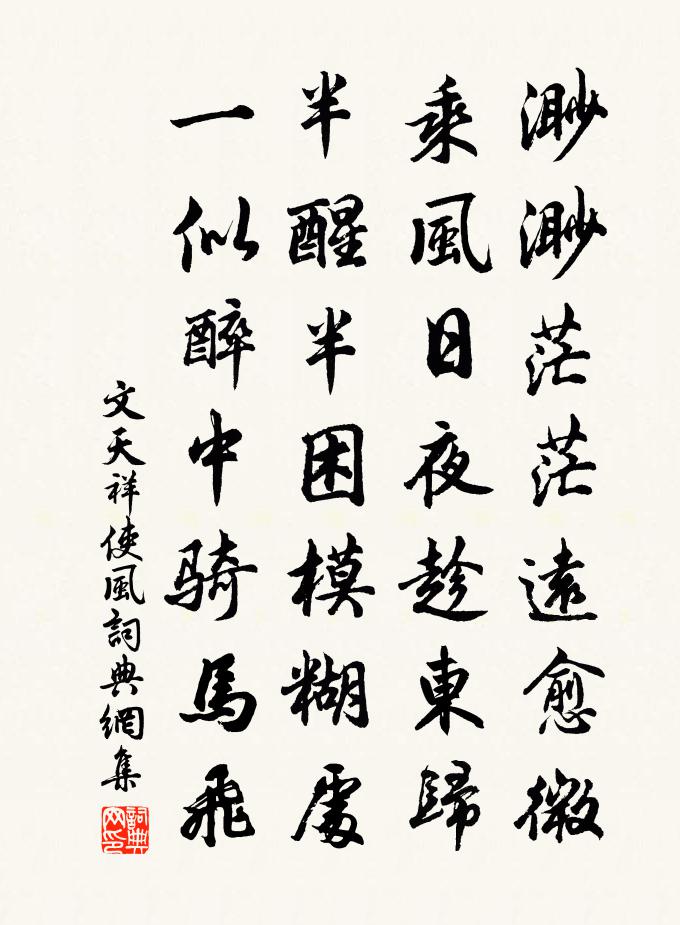 渺渺茫茫遠愈微
乘風日夜趁東歸
半醒半困模糊處
一似醉中騎馬飛
文天祥使風詞典網集
詞典網印